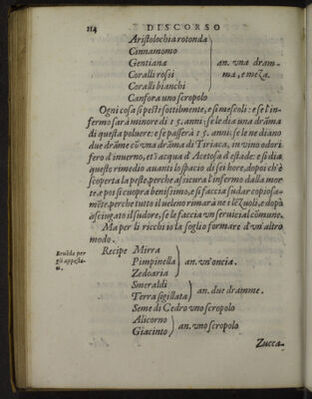 114 DISCORSO
Aristolochia rotonda
Cinnamomo
Gentiana
Coralli rossi
Coralli bianchi
an. vna dram-
ma, e meza.
Canfora uno scropolo
Ogni cosa si peste sottilmente, e si mescoli: e se l'in-
fermo sarà minore di 15. anni: se le dia una drãma
di questa poluere: e se passerà 15. anni: se le ne diano
due drãme cõ vna drãma di Tiriaca, in vino odori
fero d'inuerno, et ĩ acqua d'Acetosa d'estade: e si dia
questo rimedio auanti lo spacio di sei hore, dopoi ch'è
scoperta la peste, perche assicura l'infermo dalla mor
te: e poi si cuopra benissimo, e si faccia sudar copiosa-
mẽte, perche tutto il ueleno rimarà ne i lẽzuoli, e dopò
asciugato il sudore, se le faccia vn seruicial cõmune.
Ma per li ricchi io la soglio formare d'vn'altro
modo.
per
gli
Recipe Mirra
Pimpinella
Zedoaria
an. vn'oncia.
Smeraldi
Terra sigillata
an. due dramme.
Seme di Cedro vno scropolo
Alicorno
Giacinto
an. vno scropolo
Zucca-